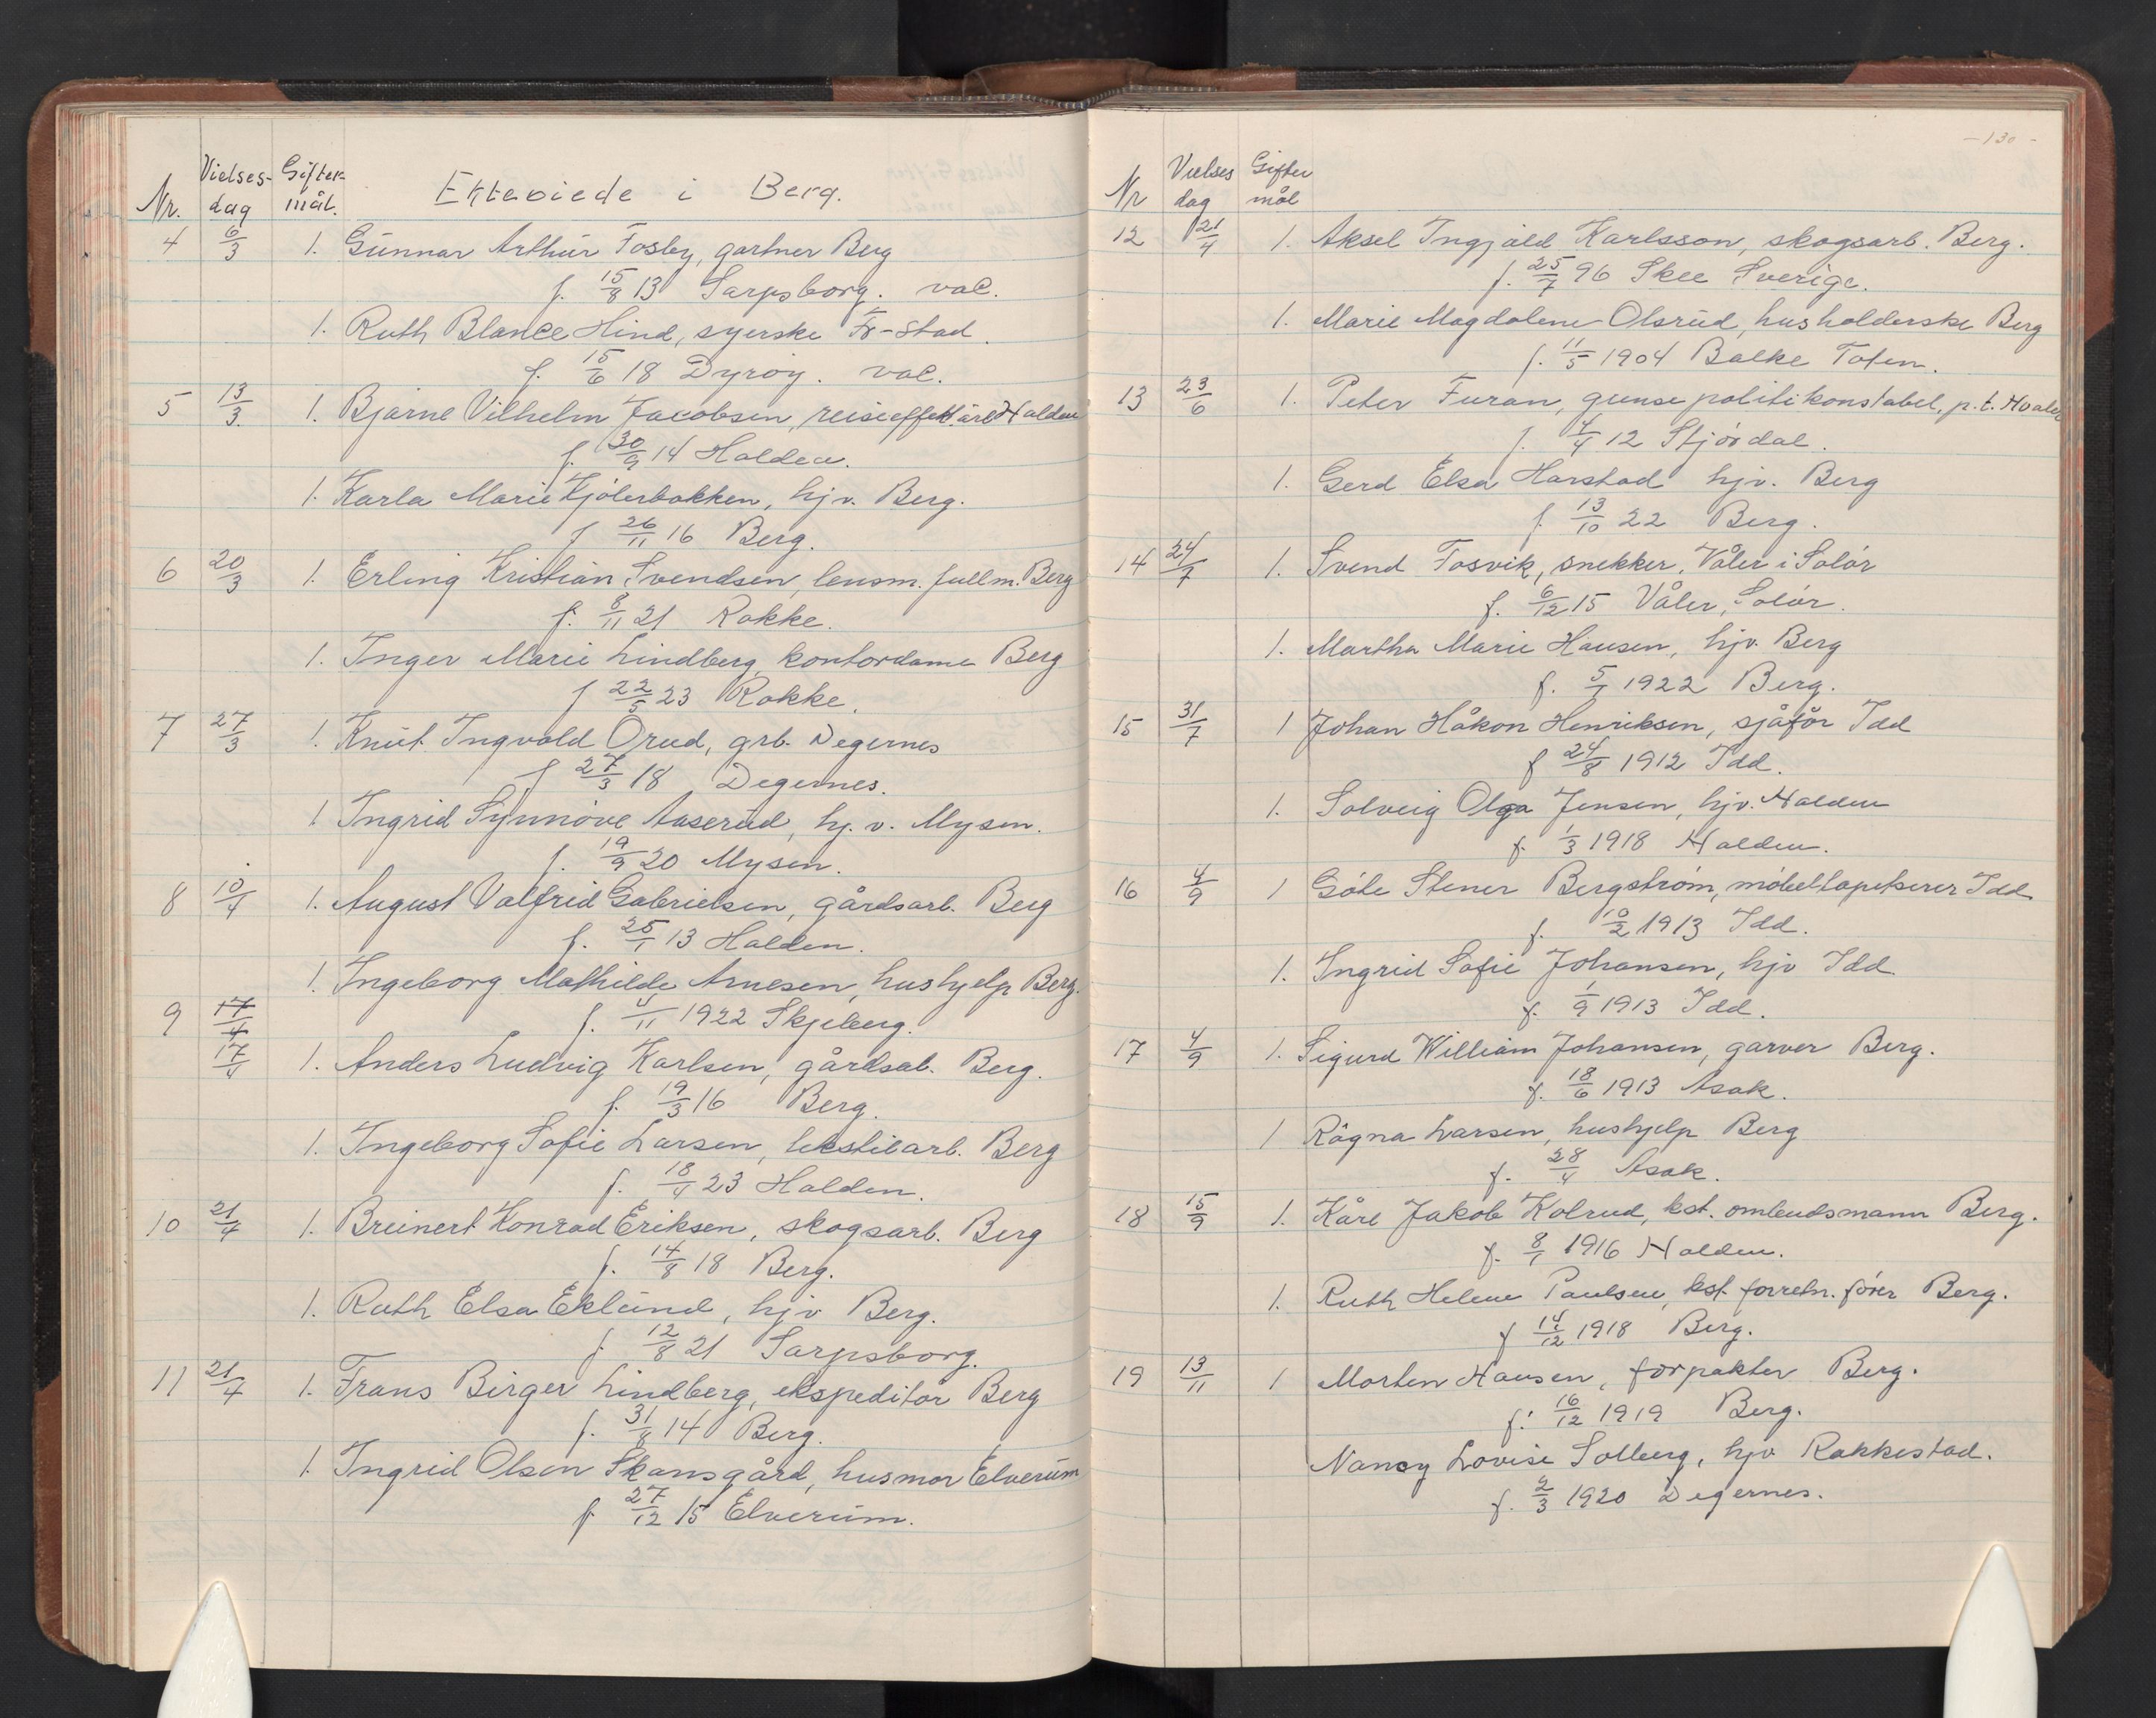 Nr. Vielses-dag Giftermål. Ektevidede i Berg.
4 6/3 1. Gunnar Arthur Fosby, gartner Berg
f. 15/8 13 Sarpsborg. vac.
1. Ruth Blance Hind, syerske Fr-stad.
f. 15/6 18 Dyrøy. vac.
5 13/3. 1. Bjarne Vilhelm Jacobsen, Halden
f. 30/9 14 Halden.
1. Karla Marie Kjølerbakken, hjv. Berg.
f 26/11 16 Berg.
6 20/3 1. Erling Kristian Svendsen, lensm. fullm. Berg
f. 8/11 21 Rokke.
1. Inger Marie Lindberg, kontordame Berg
f 22/5 23 Rokke.
7 27/3 1. Knut Ingvald Orud, grb. Degernes
f 27/3 18 Degernes.
1 Ingrid Synnøve Aaserud, hj. v. Mysen.
f. 19/9 20 Mysen.
8 10/4 1. August Valfrid Gabrielsen, gårdsarb. Berg
f. 25/1 13 Halden.
1. Ingeborg Mathilde Arnesen, hushjelp Berg.
9 17/4 f. 4/11 1922 Skjeberg.
17/4 1. Anders Ludvig Karlsen, gårdsab. Berg.
f. 19/3 16 Berg.
1. Ingeborg Sofie Larsen, tekstilarb. Berg
f. 18/4 23 Halden.
10 21/4 1. Breinert Konrad Eriksen, skogsarb. Berg
f. 14/8 18 Berg.
1. Ruth Elsa Eklund, hjv Berg.
f 12/8 21 Sarpsborg.
11 21/4 1. Frans Birger Lindberg, ekspeditør Berg
f. 31/8 14 Berg.
1. Ingrid Olsen Skansgård, husmor Elverum
f 27/12 15 Elverum.
-130-
Nr Vielses dag Gifter mål
12 21/4 1. Aksel Ingjald Karlsson, skogsarb. Berg.
f. 25/7 96 Skee Sverige.
1. Marie Magdalene Olsrud, husholderske Berg
f. 11/5 1904 Balke Toten.
13 23/6 1. Peter Furan, grensepolitikonstabel, p.t. Hvaler
f. 4/4 12 Stjørdal.
1. Gerd Elsa Harstad hjv. Berg
f. 13/10 22 Berg.
14 24/7 1. Svend Tosvik, snekker, Våler i Solør
f. 6/12 15 Våler, Solør.
1. Martha Marie Hansen, hjv. Berg
f. 5/1 1922 Berg.
15 31/7 1 Johan Håkon Henriksen, sjåfør Idd
f 24/8 1912 Idd.
1. Solveig Olga Jensen, hjv. Halden
f. 1/3 1918 Halden.
16 4/9 1 Gøte Stener Bergstrøm, møbeltapetserer Idd.
f. 10/2 1913 Idd.
1. Ingrid Sofie Johansen, hjv Idd.
f. 1/9 1913 Idd.
17 4/9 1. Sigurd William Johansen, garver Berg.
f. 18/6 1913 Asak.
1 Ragna Larsen, hushjelp Berg
f. 28/4 Asak.
18 15/9 1. Kåre Jakob Kolrud, kst. ombudsmann Berg.
f. 8/1 1916 Halden.
1. Ruth Helene Paulsen, kst. forretn. fører Berg.
f 14/12 1918 Berg.
19 13/11 1 Morten Hansen, forpakter Berg.
f. 16/12 1919 Berg.
Nancy Lovise Solberg, hjv Rakkestad.
f. 2/3 1920 Degernes.